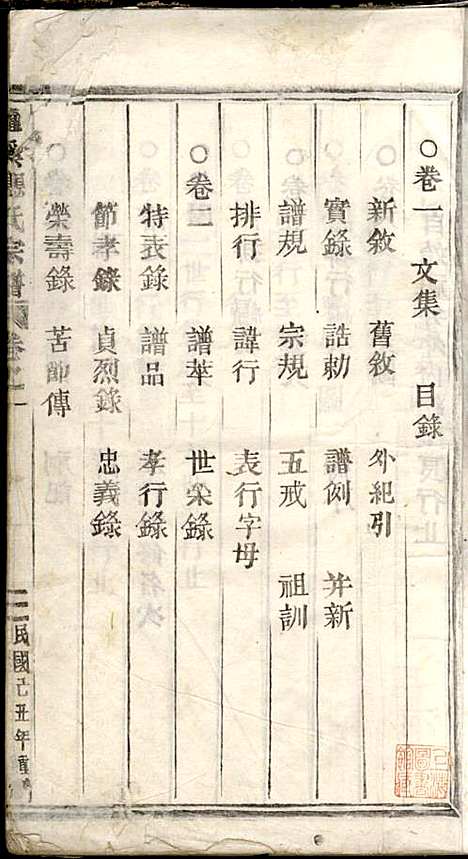 ○卷一 文集 目錄
新敘 舊敘 外紀引
實錄 誥勅 譜例 并新
譜規 宗規 五戒 祖訓
排行 諱行 表行字母
○卷二 譜萃 世榮錄
特表錄 譜品 孝行錄
節孝錄 貞烈錄 忠義錄
榮壽錄 苦節傳
氏宗譜 卷之一 民國己丑年重